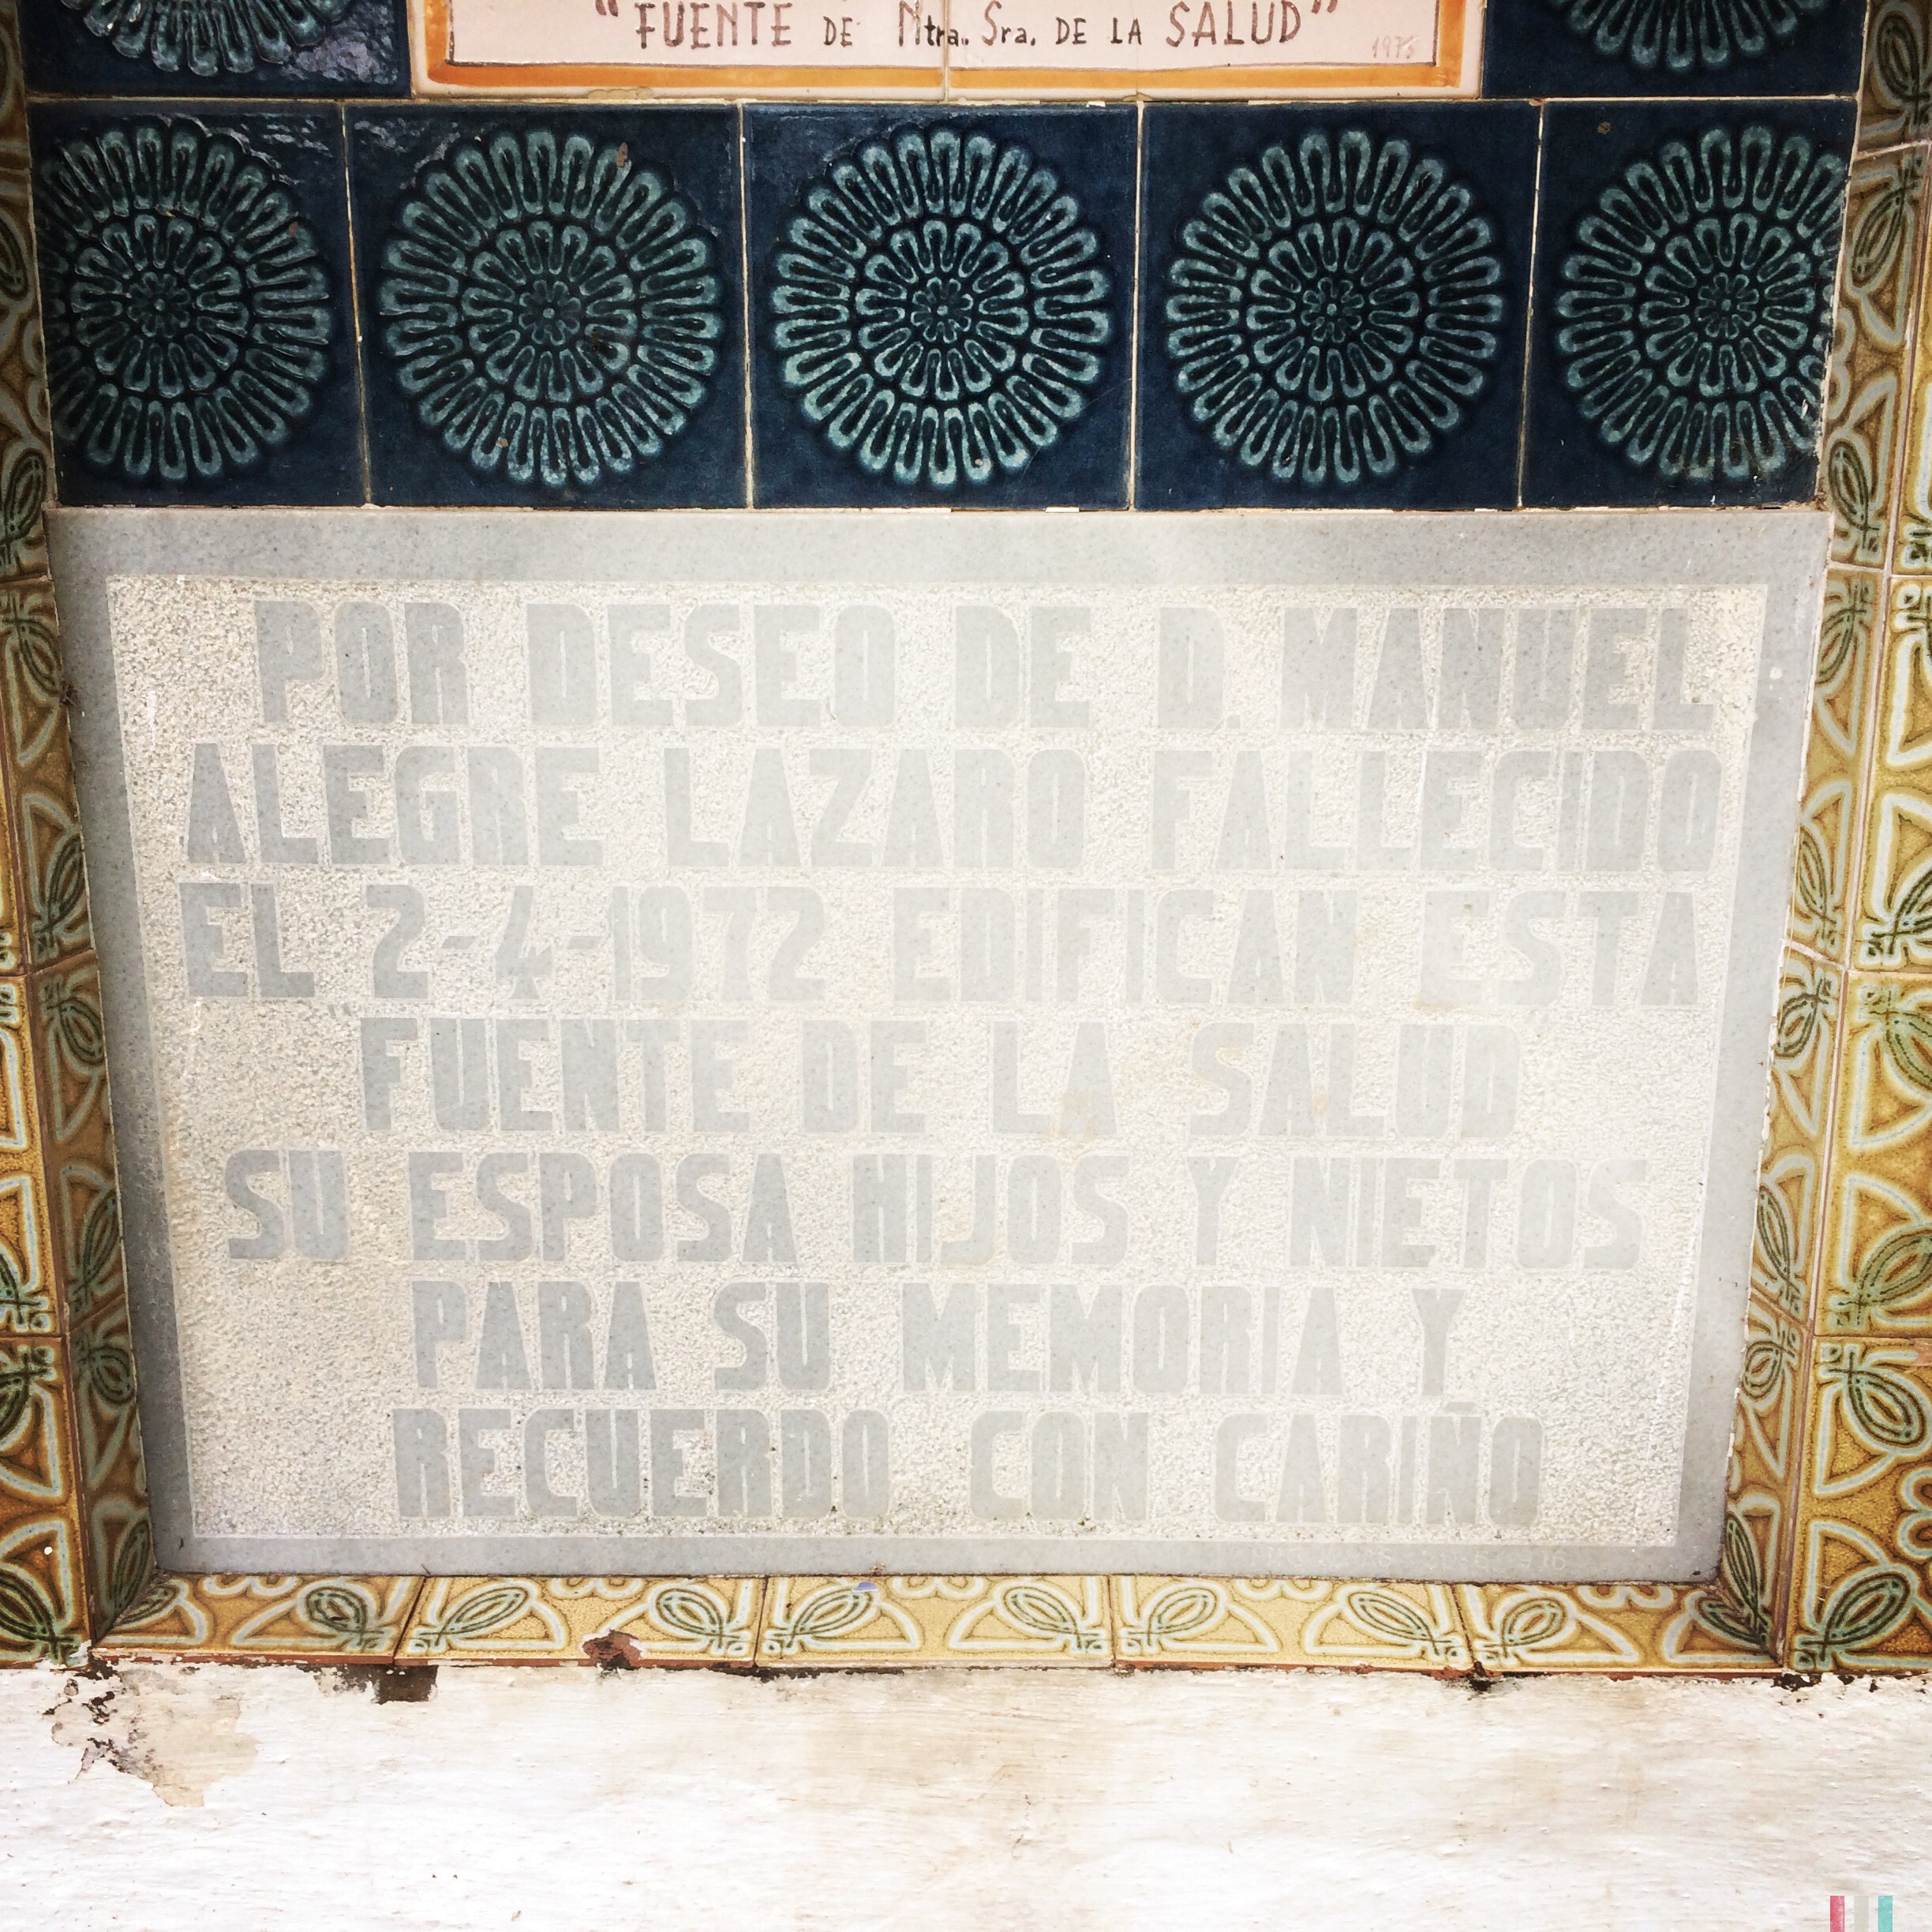 "FUENTE DE Ntra. Sra. DE LA SALUD"
POR DESEO DE D. MANUEL
ALEGRE LAZARO FALLECIDO
EL 2-4-1972 EDIFICAN ESTA
"FUENTE DE LA SALUD
SU ESPOSA HIJOS Y NIETOS
PARA SU MEMORIA Y
RECUERDO CON CARIÑO